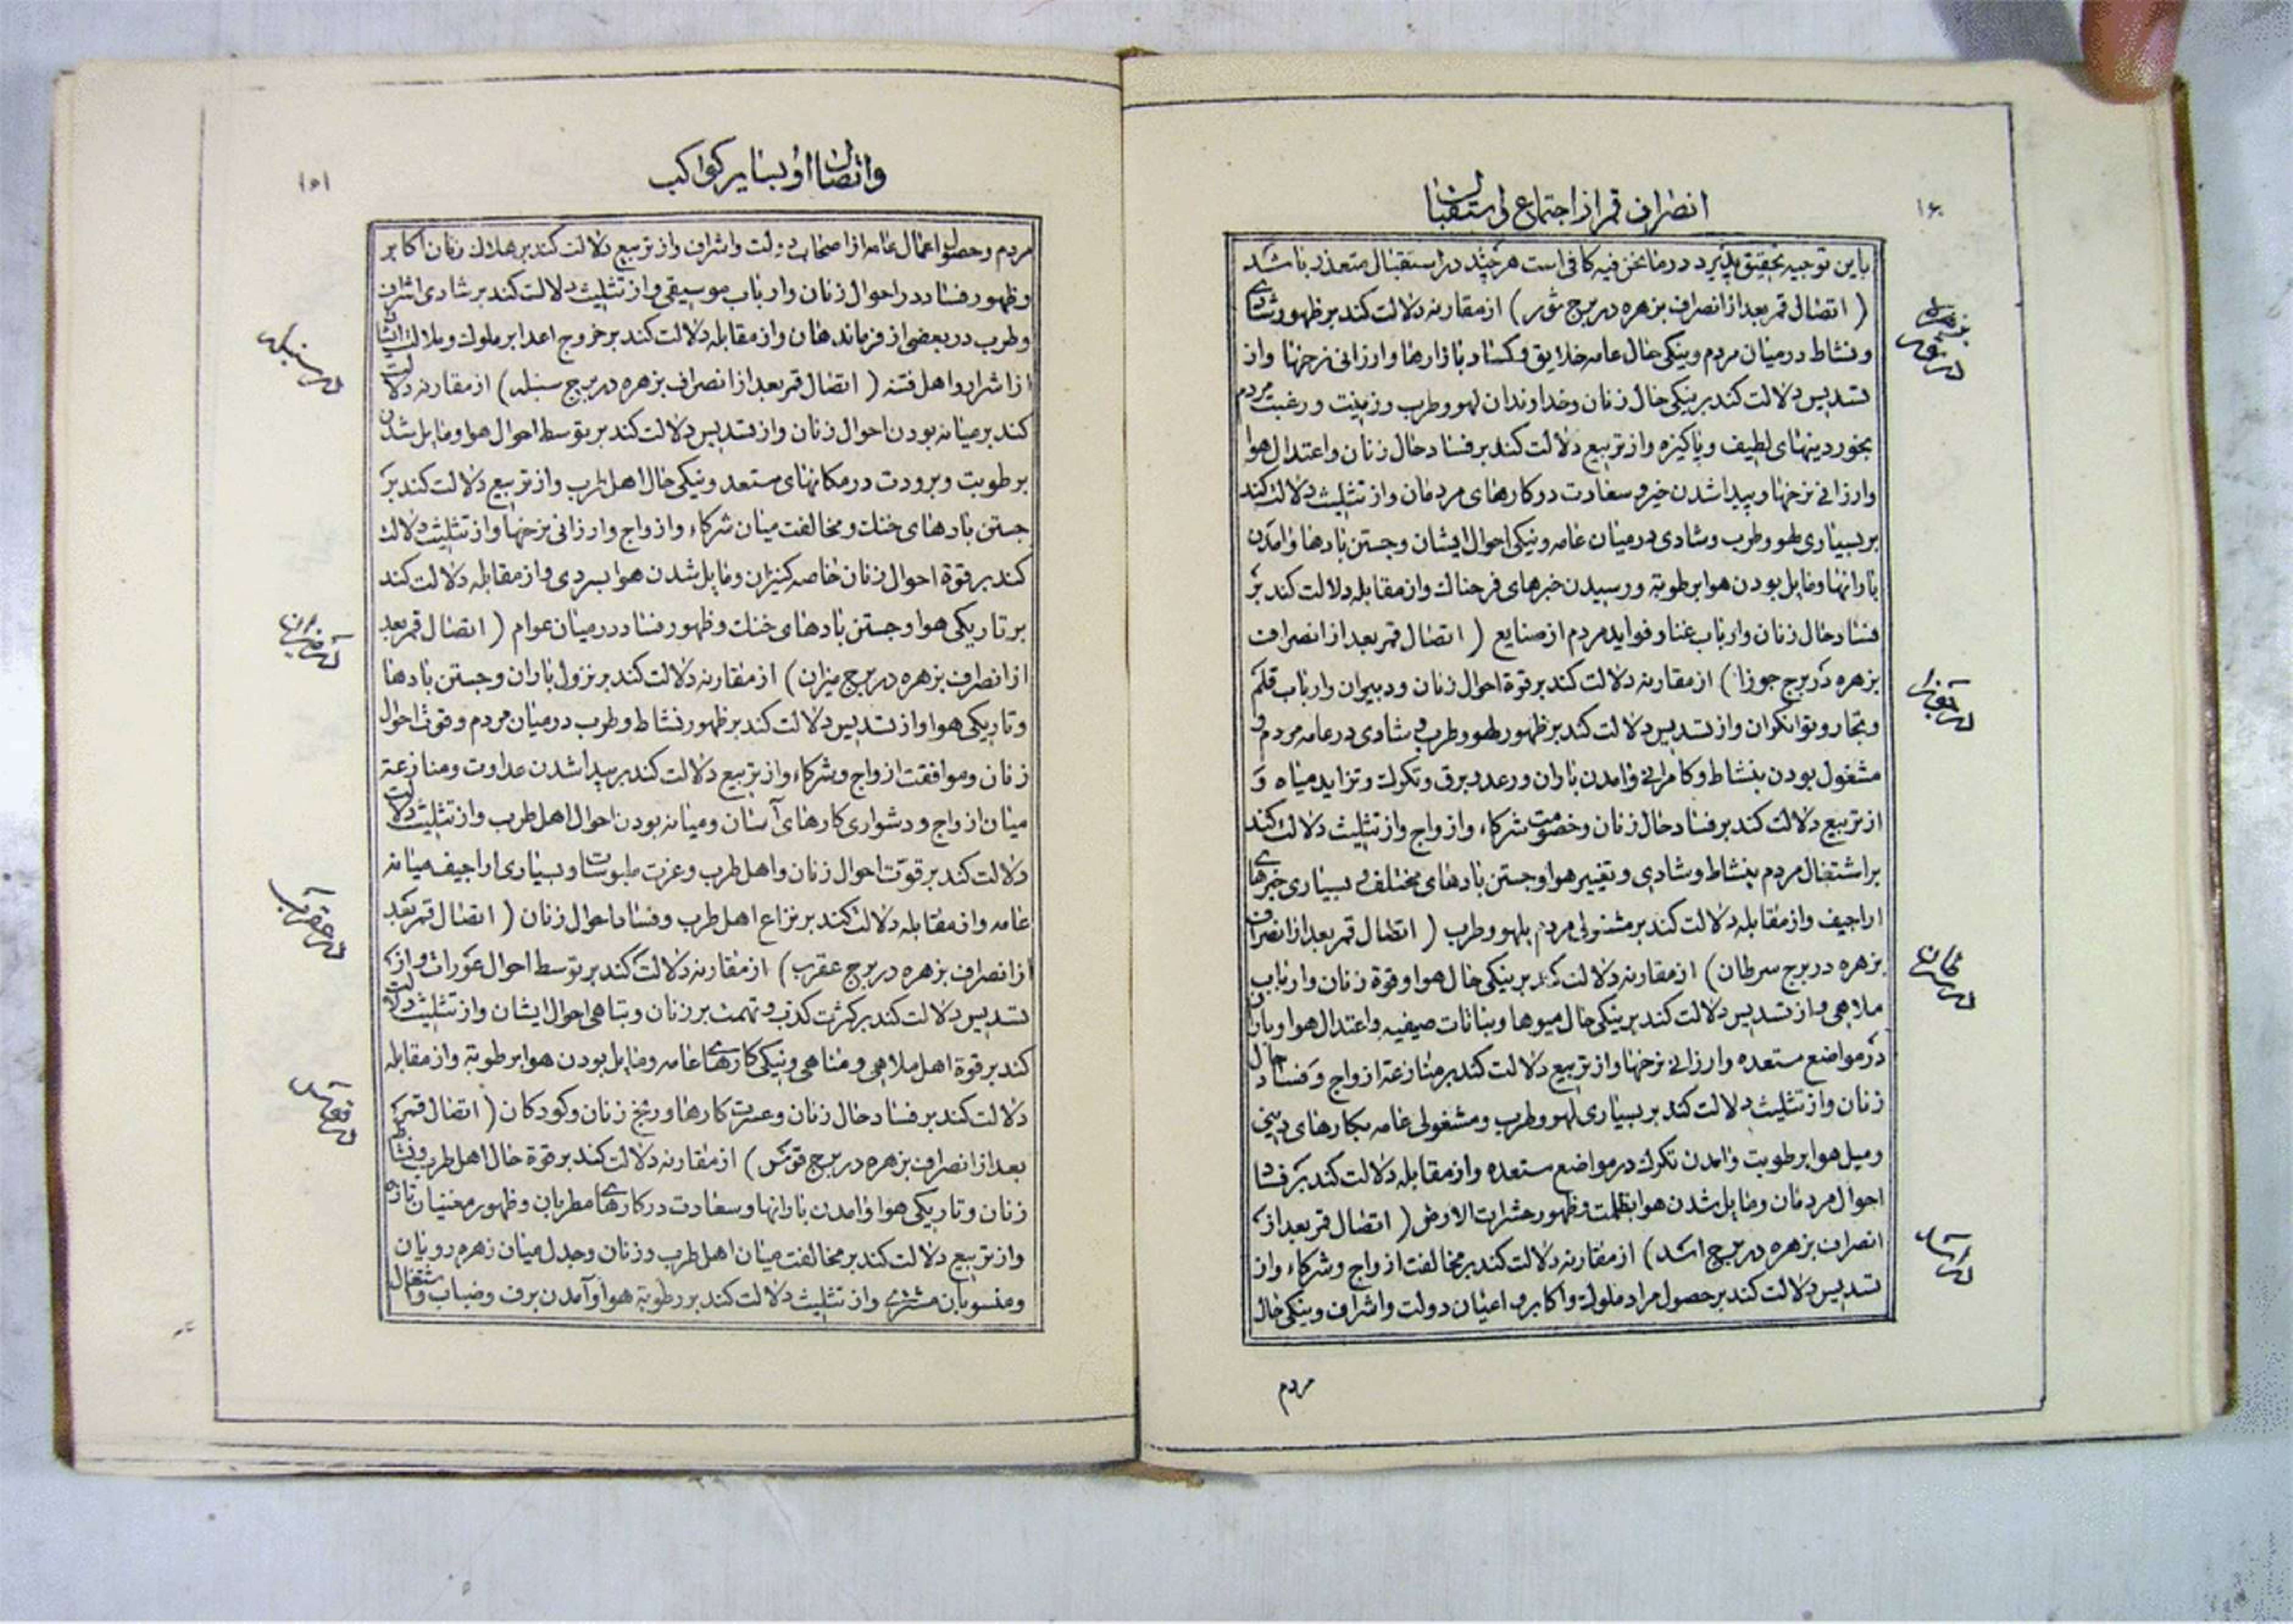 انصراف قمر از اجتماع و استقبال
باین توجیه تحقیق پذیرد در ما نحن فیه کافی است هر چند در استقبال متعذر باشد
( اتصال قمر بعد از انصراف بزهره در برج ثور ) از مقارنه دلالت کند بر ظهور شادی
و نشاط در میان مردم و نیکی حال عامه خلایق و کساد بازارها و ارزانی نرخها و از
تسدیس دلالت کند بر نیکی حال زنان و خداوندان لهو و طرب و زینت و رغبت مردم
بخوردینهای لطیف و پاکیزه و از تربیع دلالت کند بر فساد حال زنان و اعتدال هوا
وارزانی نرخها و پیدا شدن خیر و سعادت در کارهای مردمان و از تثلیث دلالت کند
بر بسیاری لهو و طرب و شادی در میان عامه و نیکی احوال ایشان و جستن بادها و آمدن
بارانها و مایل بودن هوا برطوبة و رسیدن خبرهای فرحناك و از مقابله دلالت کند بر
فساد حال زنان و ارباب غنا و فواید مردم از صنایع ( اتصال قمر بعد از انصراف
بزهره در برج جوزا ) از مقارنه دلالت کند بر قوة احوال زنان و دبیران و ارباب قلم
و تجار و توانکران و از تسدیس دلالت کند بر ظهور لهو و طرب و شادی در عامه مردم و
مشغول بودن بنشاط و کامرانی و آمدن باران و رعد و برق و تکرك و تزاید میاه و
از تربیع دلالت کند بر فساد حال زنان و خصومت شرکاء و ازواج و از تثلیث دلالت کند
بر اشتغال مردم بنشاط و شادی و تغییر هوا و جستن بادهای مختلف و بسیاری خبرهای
اراجیف و از مقابله دلالت کند بر مشغولی مردم بلهو و طرب ( اتصال قمر بعد از انصراف
بزهره در برج سرطان ) از مقارنه دلالت کند بر نیکی حال هوا و قوة زنان و ارباب
ملاهی و از تسدیس دلالت کند بر نیکی حال میوها و نباتات صیفیه و اعتدال هوا و باران
در مواضع مستعده و ارزانی نرخها و از تربیع دلالت کند بر منازعة ازواج و فساد حال
زنان و از تثلیث دلالت کند بر بسیاری لهو و طرب و مشغولی عامه بکارهای دینی
و میل هوا برطوبت و آمدن تکرك در مواضع مستعده و از مقابله دلالت کند بر فساد
احوال مردمان و مایل شدن هوا بظلمت و ظهور حشرات الارض ( اتصال قمر بعد از
انصراف بزهره در برج اسد ) از مقارنه دلالت کند بر مخالفت ازواج و شرکاء و از
تسدیس دلالت کند بر حصول مراد ملوك و اکابر و اعیان دولت و اشراف و نیکی حال
مردم
بزهره در ثور
در جوزا
در سرطان
در اسد
واتصال او بسایر کواکب
۱۵۱
مردم و حصول اعمال عامه از اصحاب دولت و اشراف و از تربیع دلالت کند بر هلاك زنان اکابر
و ظهور فساد در احوال زنان و ارباب موسیقی و از تثلیث دلالت کند بر شادی اشراف
و طرب در بعضی از فرماندهان و از مقابله دلالت کند بر خروج اعدا بر ملوك و ملالت ایشان
از اشرار و اهل فتنه ( اتصال قمر بعد از انصراف بزهره در برج سنبله ) از مقارنه دلالت
کند بر میانه بودن احوال زنان و از تسدیس دلالت کند بر توسط احوال هوا و مایل شدن
برطوبت و برودت در مکانهای مستعد و نیکی حال اهل طرب و از تربیع دلالت کند بر
جستن بادهای خنك و مخالفت میان شرکاء و ازواج و ارزانی نرخها و از تثلیث دلالت
کند بر قوة احوال زنان خاصه کنیزان و مایل شدن هوا بسردی و از مقابله دلالت کند
بر تاریکی هوا و جستن بادهای خنك و ظهور فساد در میان عوام ( اتصال قمر بعد
از انصراف بزهره در برج میزان ) از مقارنه دلالت کند بر نزول باران و جستن بادها
و تاریکی هوا و از تسدیس دلالت کند بر ظهور نشاط و طرب در میان مردم و قوت احوال
زنان و موافقت ازواج و شرکاء و از تربیع دلالت کند بر پیدا شدن عداوت و منازعة
میان ازواج و دشواری کارهای آسان و میانه بودن احوال اهل طرب و از تثلیث دلالت
دلالت کند بر قوّت احوال زنان و اهل طرب و عزت ملبوسات و بسیاری اراجیف میانه
عامه و از مقابله دلالت کند بر نزاع اهل طرب و فساد احوال زنان ( اتصال قمر بعد
از انصراف بزهره در برج عقرب ) از مقارنه دلالت کند بر توسط احوال عورات و از
تسدیس دلالت کند بر کثرت کذب و تهمت بر زنان و تباهی احوال ایشان و از تثلیث دلالت
کند بر قوة اهل ملاهی و مناهی و نیکی کارهای عامه و مایل بودن هوا برطوبة و از مقابله
دلالت کند بر فساد حال زنان و عسرت کارها و رنج زنان و کودکان ( اتصال قمر
بعد از انصراف بزهره در برج قوس ) از مقارنه دلالت کند بر قوة حال اهل طرب و نشاط
زنان و تاریکی هوا و آمدن بارانها و سعادت در کارهای مطربان و ظهور مغنیان تازه
و از تربیع دلالت کند بر مخالفت میان اهل طرب و زنان و جدل میان زهره رویان
و منسوبان مشتری و از تثلیث دلالت کند بر رطوبة هوا و آمدن برف و ضباب و اشتغال
در سنبله
در میزان
در عقرب
در قوس